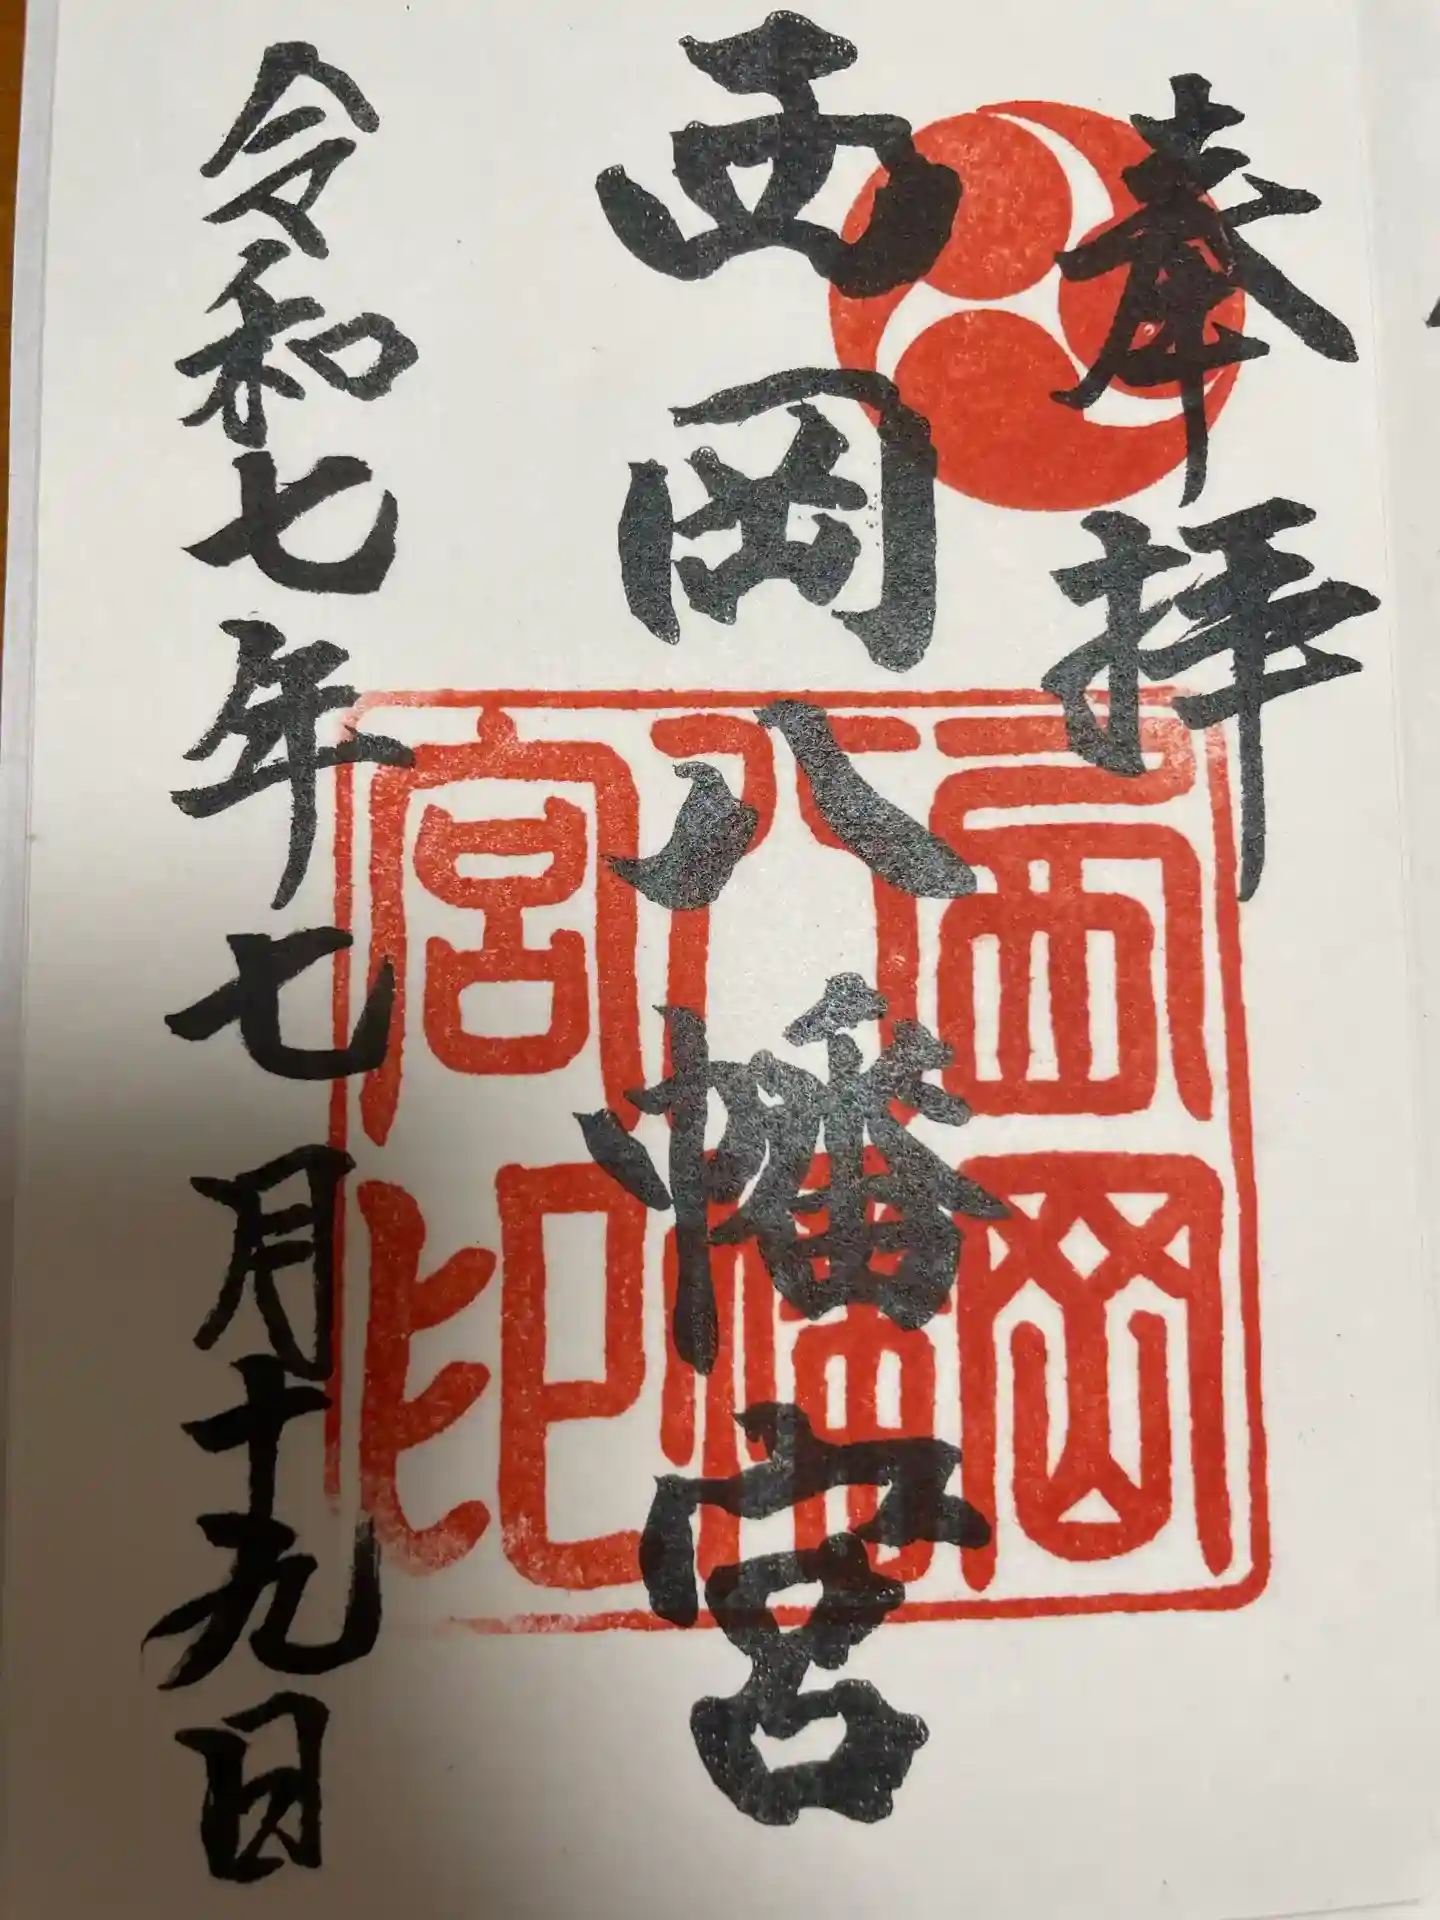 奉拝
西岡八幡宮
西岡八幡宮印
令和七年七月十九日